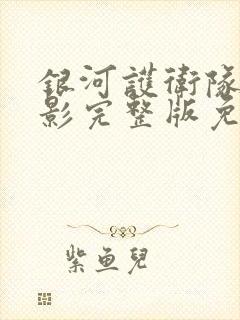 銀河護衛隊
影完整版免
紫魚兒